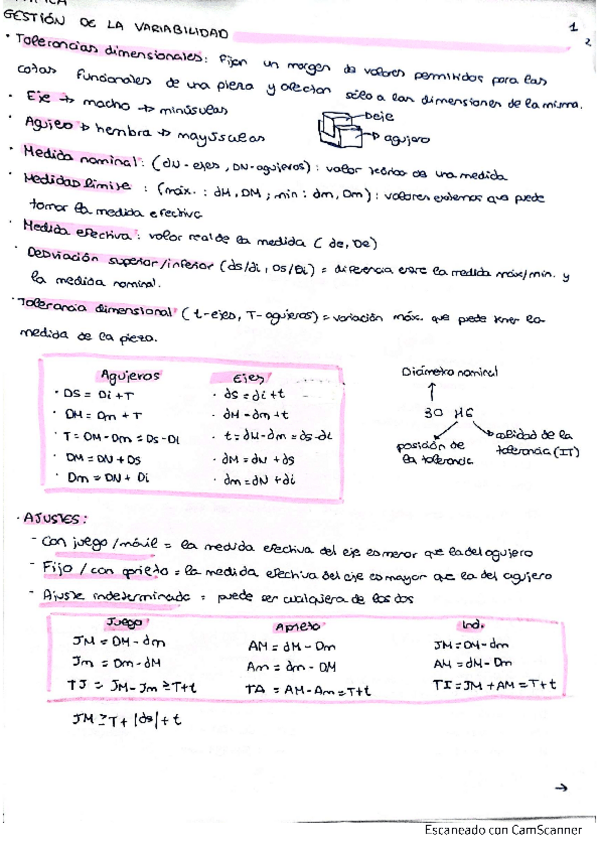 GESTIÓN DE LA VARIABILIDAD
1
2
· Tolerancias dimensionales: Fijan un margen de valores permitidos para las
cotas funcionales de una pieza y afectan sólo a las dimensiones de la misma.
· Eje → macho → minúsulas
· Agujero → hembra → mayúsculas
eje
agujero
· Medida nominal: (dN - ejes, DN - agujeros): valor teórico de una medida
· Medidas límite: (máx.: dM, DM; min: dm, Dm): valores extremos que puede
tomar la medida efectiva
· Medida efectiva: valor real de la medida (de, De)
· Desviación superior/inferior (ds/di, Ds/Di) = diferencia entre la medida máx/min. y
la medida nominal.
· Tolerancia dimensional (t-ejes, T-agujeros) = variación máx. que puede tener la
medida de la pieza.
Agujeros
Ejes
· DS = Di + T
· ds = di + t
· DM = Dm + T
· dM = dm + t
· T = DM - Dm = Ds - Di
· t = dM - dm = ds - di
· DM = DN + DS
· dM = dN + ds
· Dm = DN + Di
· dm = dN + di
Diámetro nominal
↑
30 H6
posición de
la tolerancia
calidad de la
tolerancia (IT)
· AJUSTES:
- Con juego / móvil = la medida efectiva del eje es menor que la del agujero
- Fijo / con aprieto = la medida efectiva del eje es mayor que la del agujero
- Ajuste indeterminado = puede ser cualquiera de los dos
Juego
Aprieto
Ind.
JM = DM - dm
AM = dM - Dm
JM = DM - dm
Jm = Dm - dM
Am = dm - DM
AM = dM - Dm
TJ = JM - Jm ≥ T + t
TA = AM - Am = T + t
TI = JM + AM = T + t
JM ≥ T + |ds| + t
→
Escaneado con CamScanner